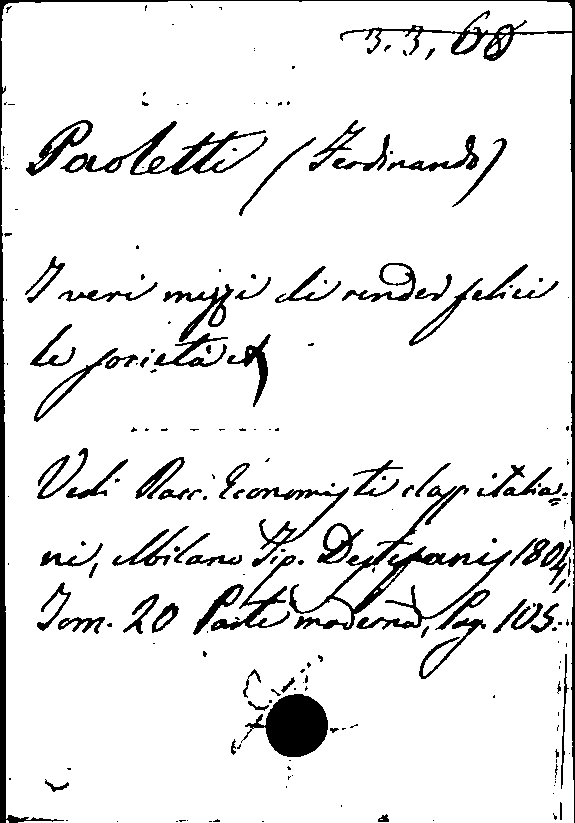 3.3,68
Paoletti (Ferdinando)
I veri mezzi di render felici
le società
Vedi Racc. Economisti class italia=
ni, Milano Tip. Destefanis 1804,
Tom. 20 Parte moderna, Pag. 105.